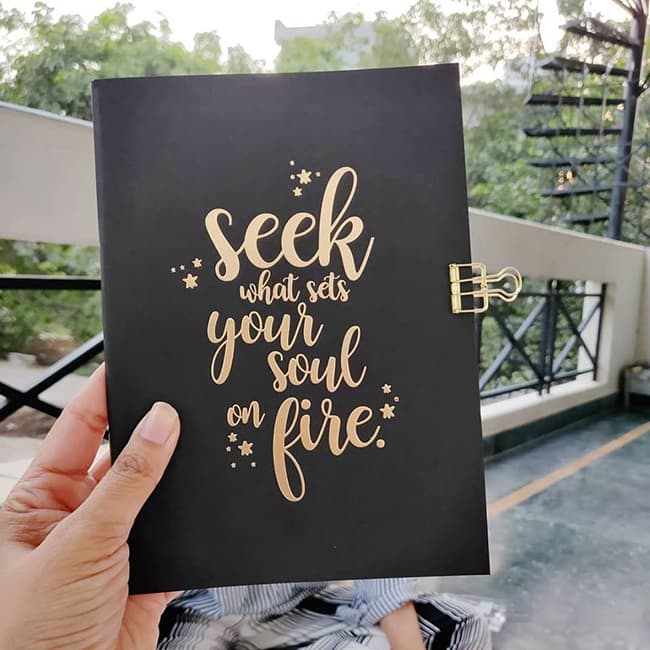 seek
what sets
your
soul
on fire.